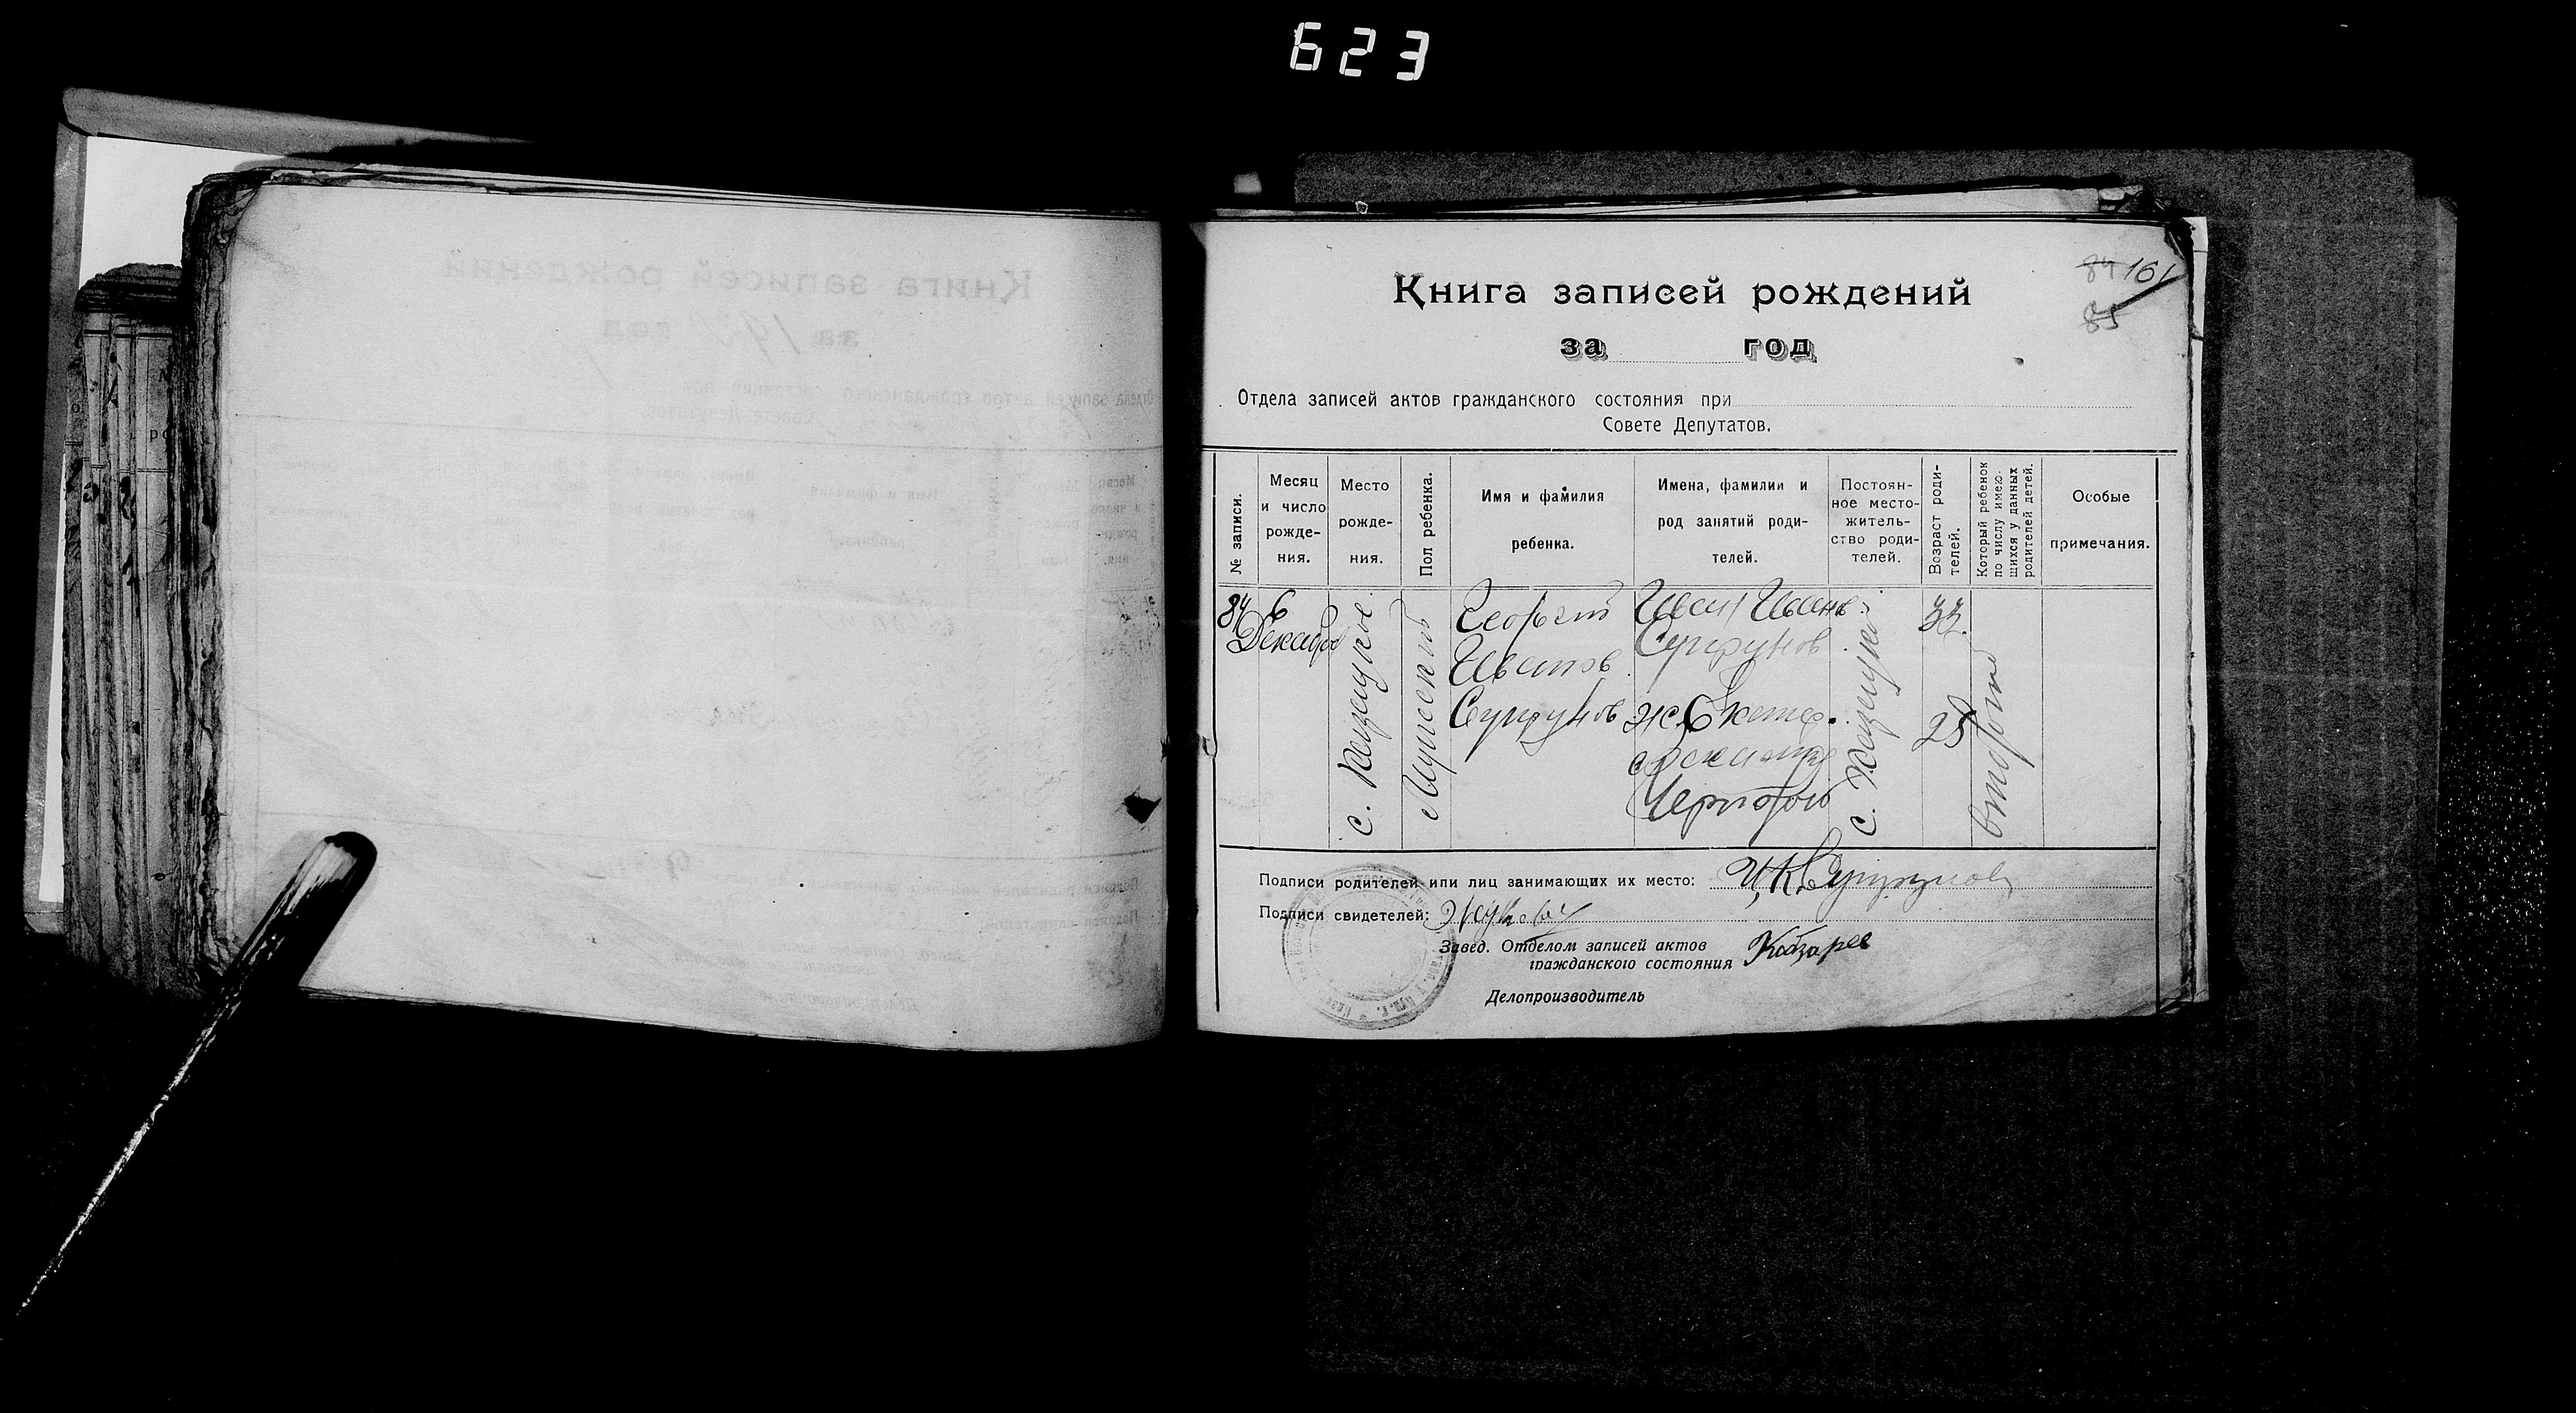 623
84 161
85
Книга записей рождений
за год
Отдела записей актов гражданского состояния при
Совете Депутатов.
№ записи.
Месяц и число рожде- ния.
Место рожде- ния.
Пол ребенка.
Имя и фамилия ребенка.
Имена, фамилии и род занятий роди- телей.
Постоян- ное место- житель- ство роди- телей.
Возраст роди- телей.
Который ребенок по числу имею- щихся у данных родителей детей.
Особые примечания.
84
6
Декабря
с.
Мужской
Георгий
Иванов
Супрунов
Иван Иванов.
Супрунов
ж. Екате-
Черн
с.
33.
25
второй
Подписи родителей или лиц занимающих их место: И, К, Супрунов
Подписи свидетелей:
Завед. Отделом записей актов
гражданского состояния
Делопроизводитель